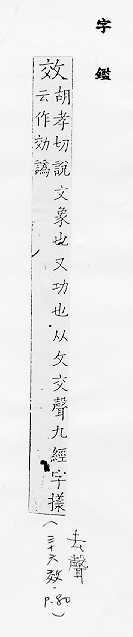 字鑑
效
胡孝切說文象也又功也从攵交聲九經字樣
云作効譌
去聲
(三十六效.P.80)